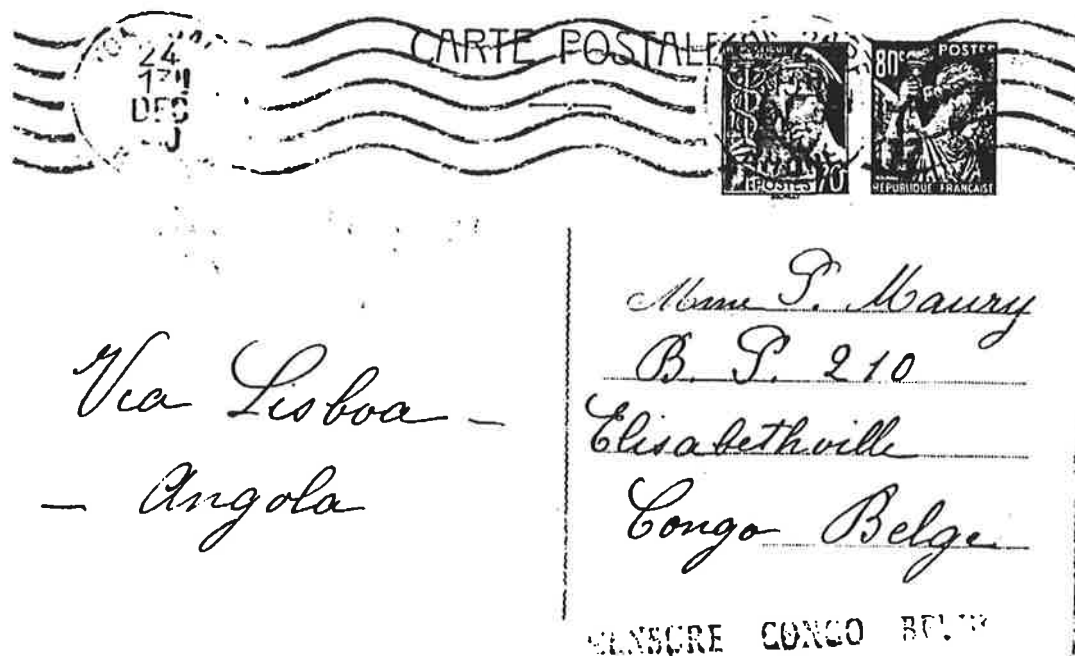 24
DEC
CARTE POSTALE
POSTES 70
80c POSTES
REPUBLIQUE FRANÇAISE
Via Lisboa -
- Angola
Mme P. Maury
B. P. 210
Elisabethville
Congo Belge
CENSURE CONGO BELGE